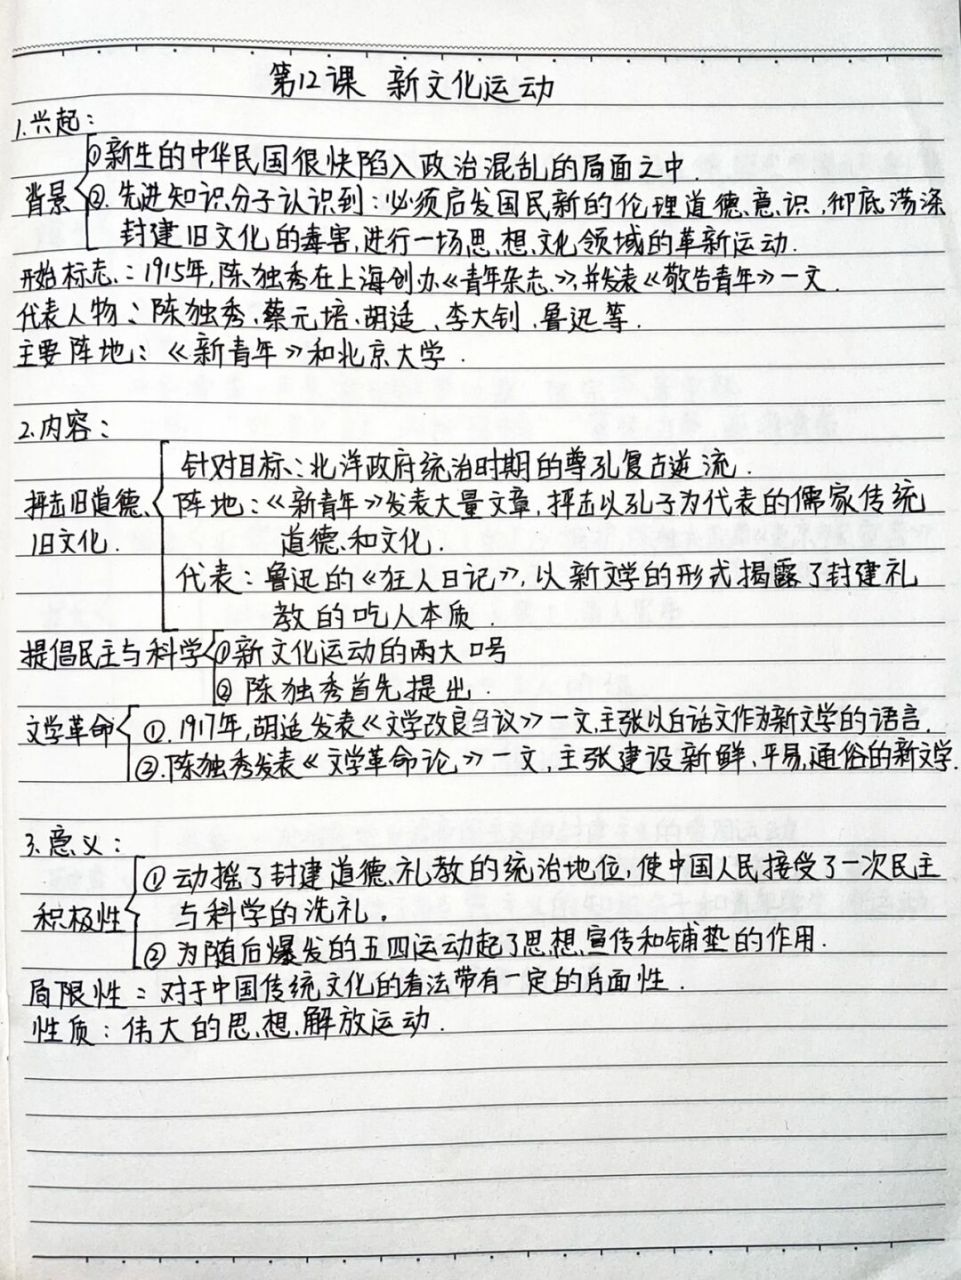 第12课 新文化运动
1.兴起:
①新生的中华民国很快陷入政治混乱的局面之中.
背景 ②.先进知识分子认识到:必须启发国民新的伦理道德意识,彻底荡涤
封建旧文化的毒害,进行一场思想文化领域的革新运动.
开始标志:1915年,陈独秀在上海创办《青年杂志》,并发表《敬告青年》一文.
代表人物:陈独秀、蔡元培、胡适、李大钊、鲁迅等.
主要阵地:《新青年》和北京大学.
2.内容:
针对目标:北洋政府统治时期的尊孔复古逆流.
抨击旧道德、 阵地:《新青年》发表大量文章,抨击以孔子为代表的儒家传统
旧文化. 道德和文化.
代表:鲁迅的《狂人日记》,以新文学的形式揭露了封建礼
教的吃人本质.
提倡民主与科学 ①新文化运动的两大口号
② 陈独秀首先提出.
文学革命 ①.1917年,胡适发表《文学改良刍议》一文,主张以白话文作为新文学的语言.
②.陈独秀发表《文学革命论》一文,主张建设新鲜、平易、通俗的新文学.
3.意义:
① 动摇了封建道德、礼教的统治地位,使中国人民接受了一次民主
积极性 与科学的洗礼。
② 为随后爆发的五四运动起了思想宣传和铺垫的作用.
局限性:对于中国传统文化的看法带有一定的片面性.
性质:伟大的思想解放运动.